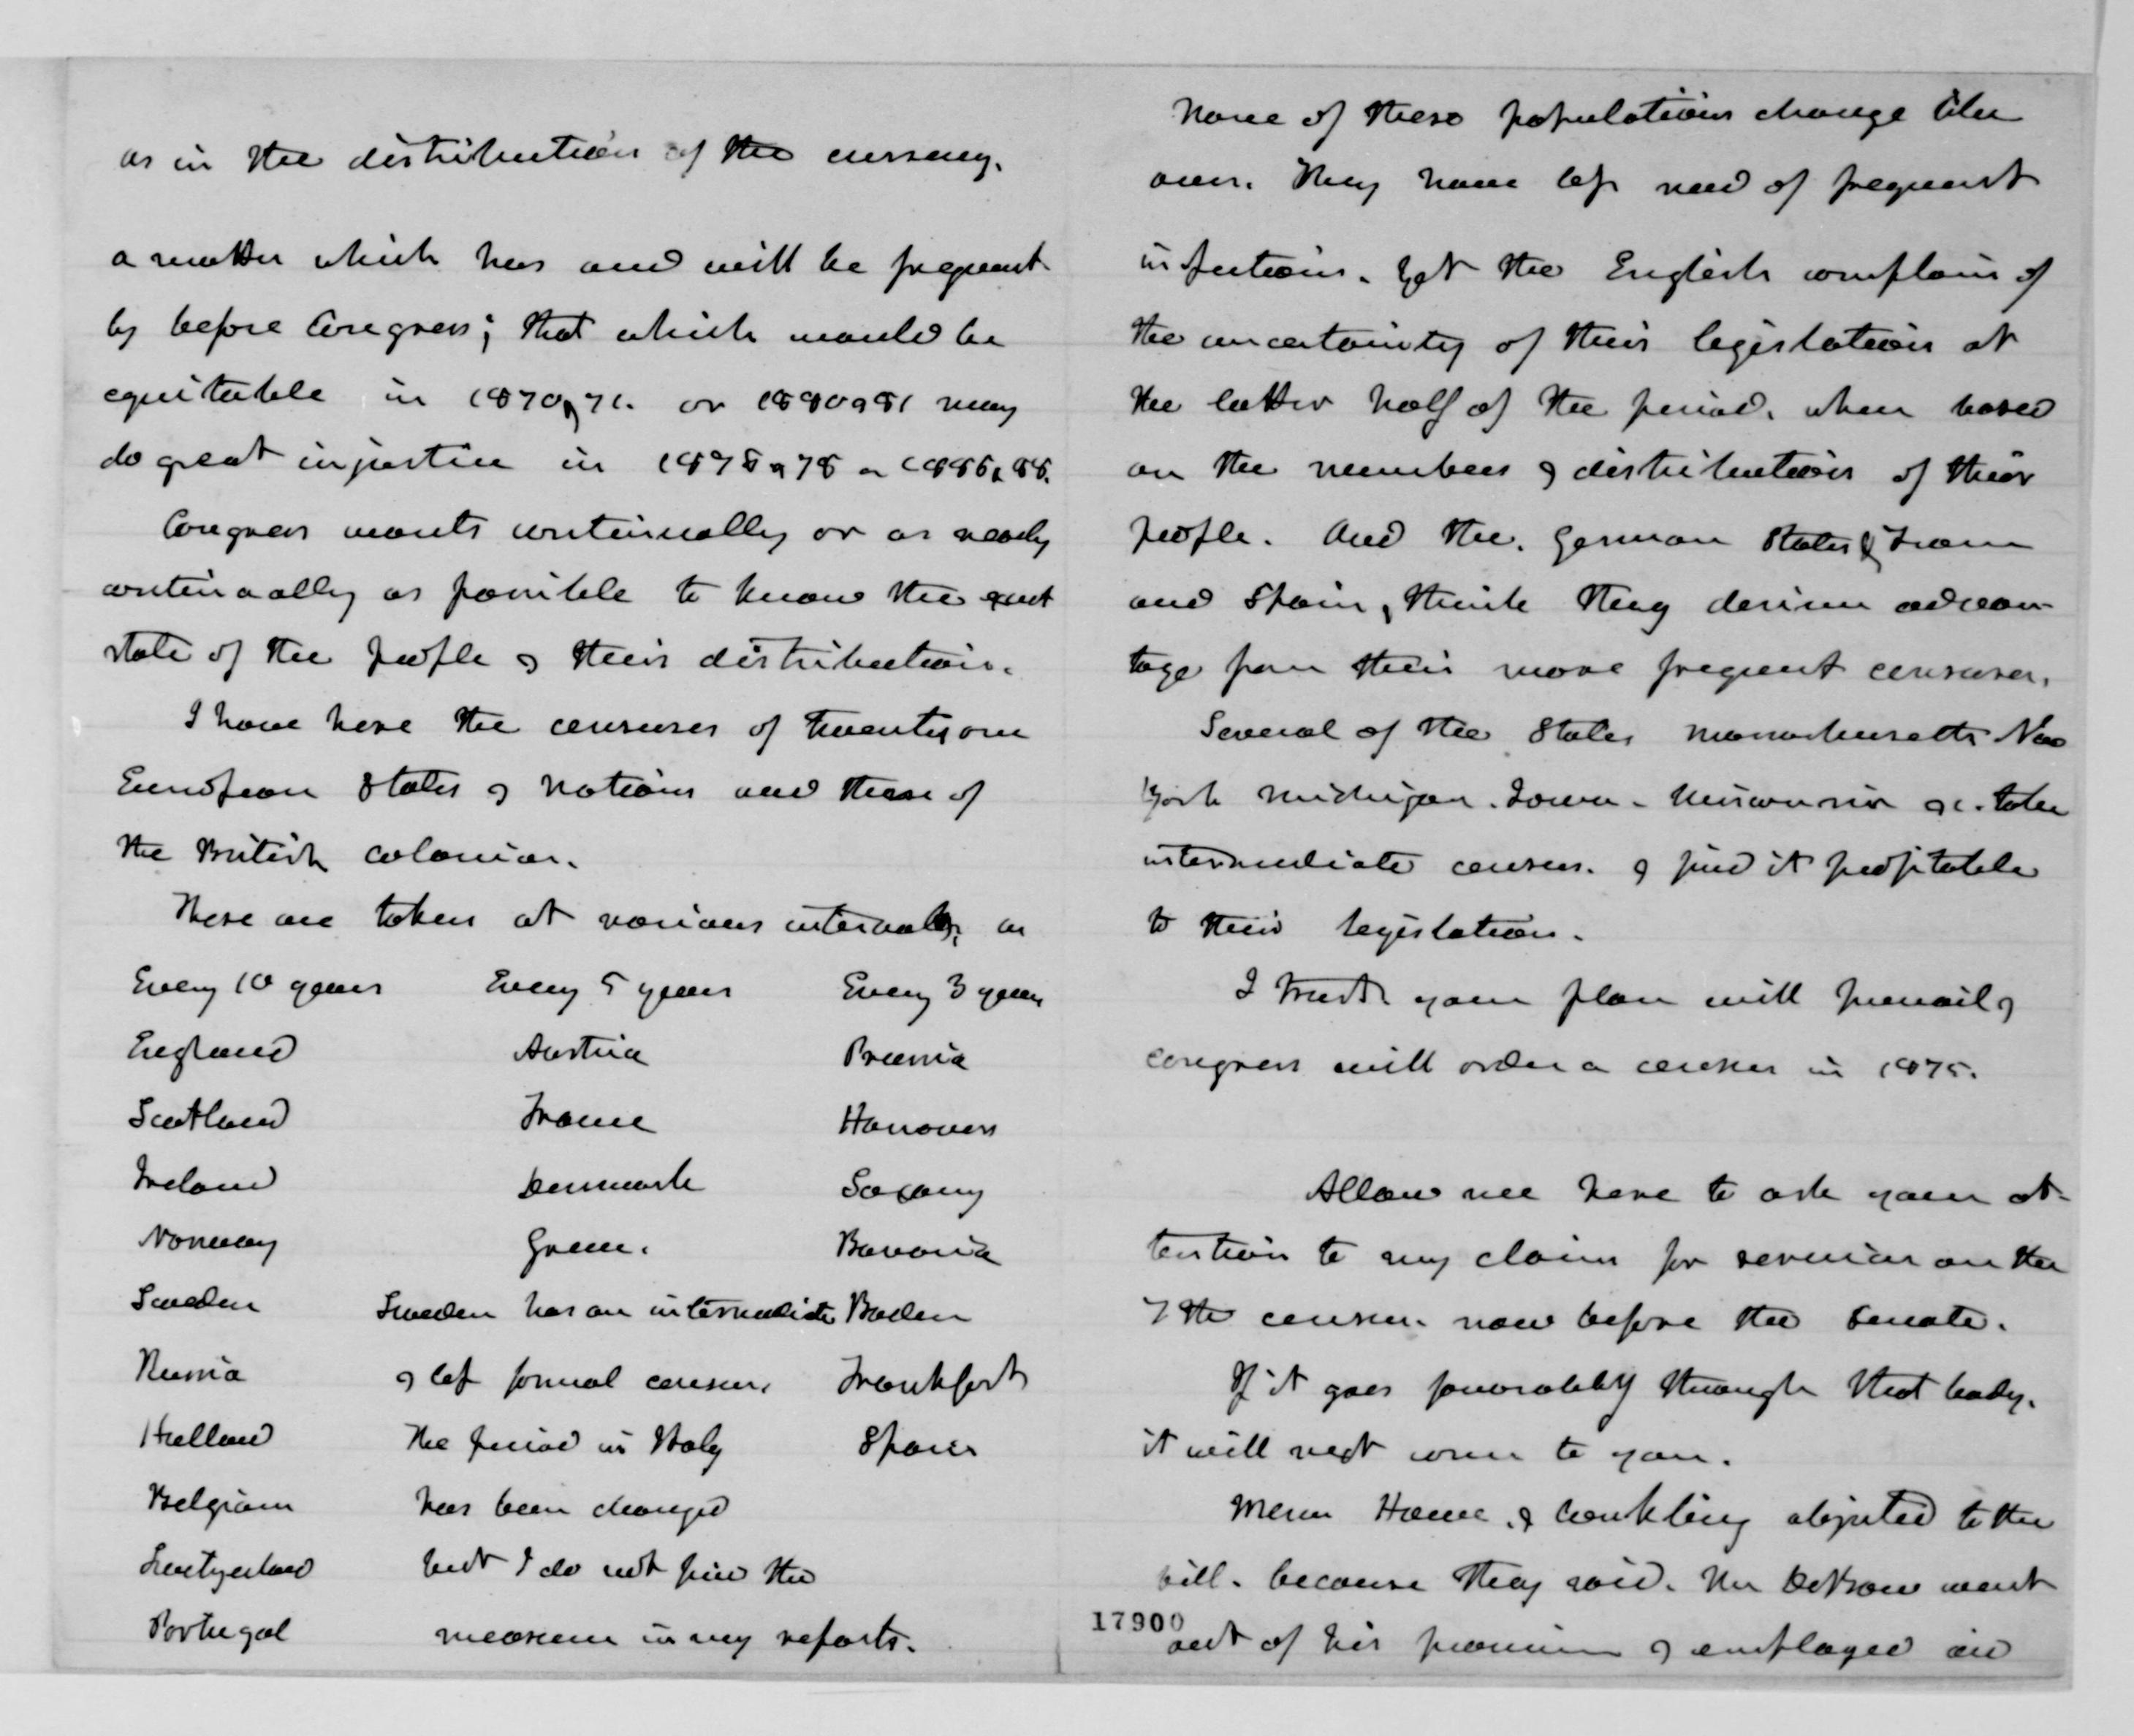 as in the distribution of the currency.
a matter which has and will be frequent
ly before Congress; that which would be
equitable in 1870 & 71. or 1880 & 81 may
do great injustice in & 78 or 1886 & 88.
Congress wants continually or as nearly
continually as possible to know the exact
state of the people & their distribution.
I have here the censuses of twenty one
European States & Nations and these of
the British colonies.
These are taken at various intervals, as
Every 10 years Every 5 years Every 3 years
England Austria Prussia
Scotland France Hanover
Ireland Denmark Saxony
Norway Greece. Bavaria
Sweden Sweden has an intermediate Baden
Russia & less formal census, Frankfort
Holland The period in Italy Spain
Belgium has been changed
Switzerland but I do not find the
Portugal in my reports.
None of these populations change like
ours. They have less need of frequent
inspections. Yet the English complain of
the uncertainty of their legislation at
the latter half of the period, when based
on the numbers & distribution of their
people. And the German States & France
and Spain, think they derive advan-
tage from their more frequent censuses.
Several of the States Massachusetts New
York Michigan. Iowa. Wisconsin &c. take
intermediate census. & find it profitable
to their legislation.
I trust your plan will prevail &
congress will order a census in 1875.
Allow me here to ask your at-
tention to my claim for services on the
7th census. now before the Senate.
If it goes favorably through that body.
it will next come to you.
Messrs Howe. & Conkling objected to the
bill. because they said. Mr DeBow went
17900
out of his province & employed an